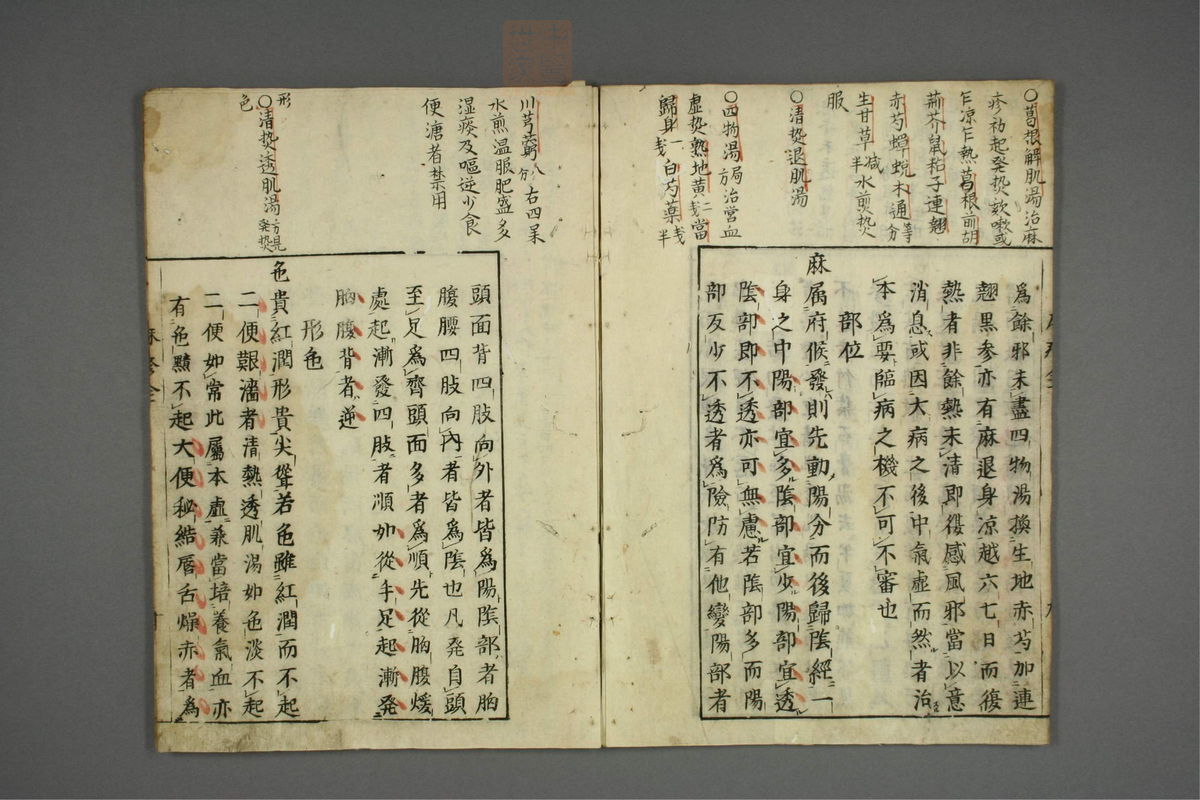 ○葛根解肌湯治麻
疹初起発熱欬嗽或
乍涼乍熱葛根前胡
荊芥鼠粘子連翹
赤芍蟬蛻木通等分
生甘草減半水煎热
服
○清热退肌湯
○四物湯局方治営血
虚热熟地黄二戔當
歸身一戔白芍薬戔半
為餘邪未盡四物湯換生地赤芍加連
翹黒参亦有麻退身凉越六七日而復
熱者非餘熱未清即復感風邪當以意
消息或因大病之後中氣虚而然者治
本為要臨病之機不可不審也
部位
麻属府候發則先動陽分而後歸陰經一
身之中陽部宜多陰部宜少陽部宜透
陰部即不透亦可無慮若陰部多而陽
部反少不透者為險防有他變陽部者
川芎藭八分右四味
水煎温服肥盛多
湿痰及嘔逆少食
便溏者禁用
形
○清热透肌湯方見発热
色
頭面背四肢向外者皆為陽陰部者胸
腹腰四肢向内者皆為陰也凡発自頭
至足為齊頭面多者為順先從胸腹煖
處起漸發四肢者順如從手足起漸発
胸腹背者逆
形色
色貴紅潤形貴尖聳若色雖紅潤而不起
二便艱濇者清熱透肌湯如色淡不起
二便如常此屬本虚兼當培養氣血亦
有色黯不起大便秘結唇舌燥赤者為
麻疹全
十